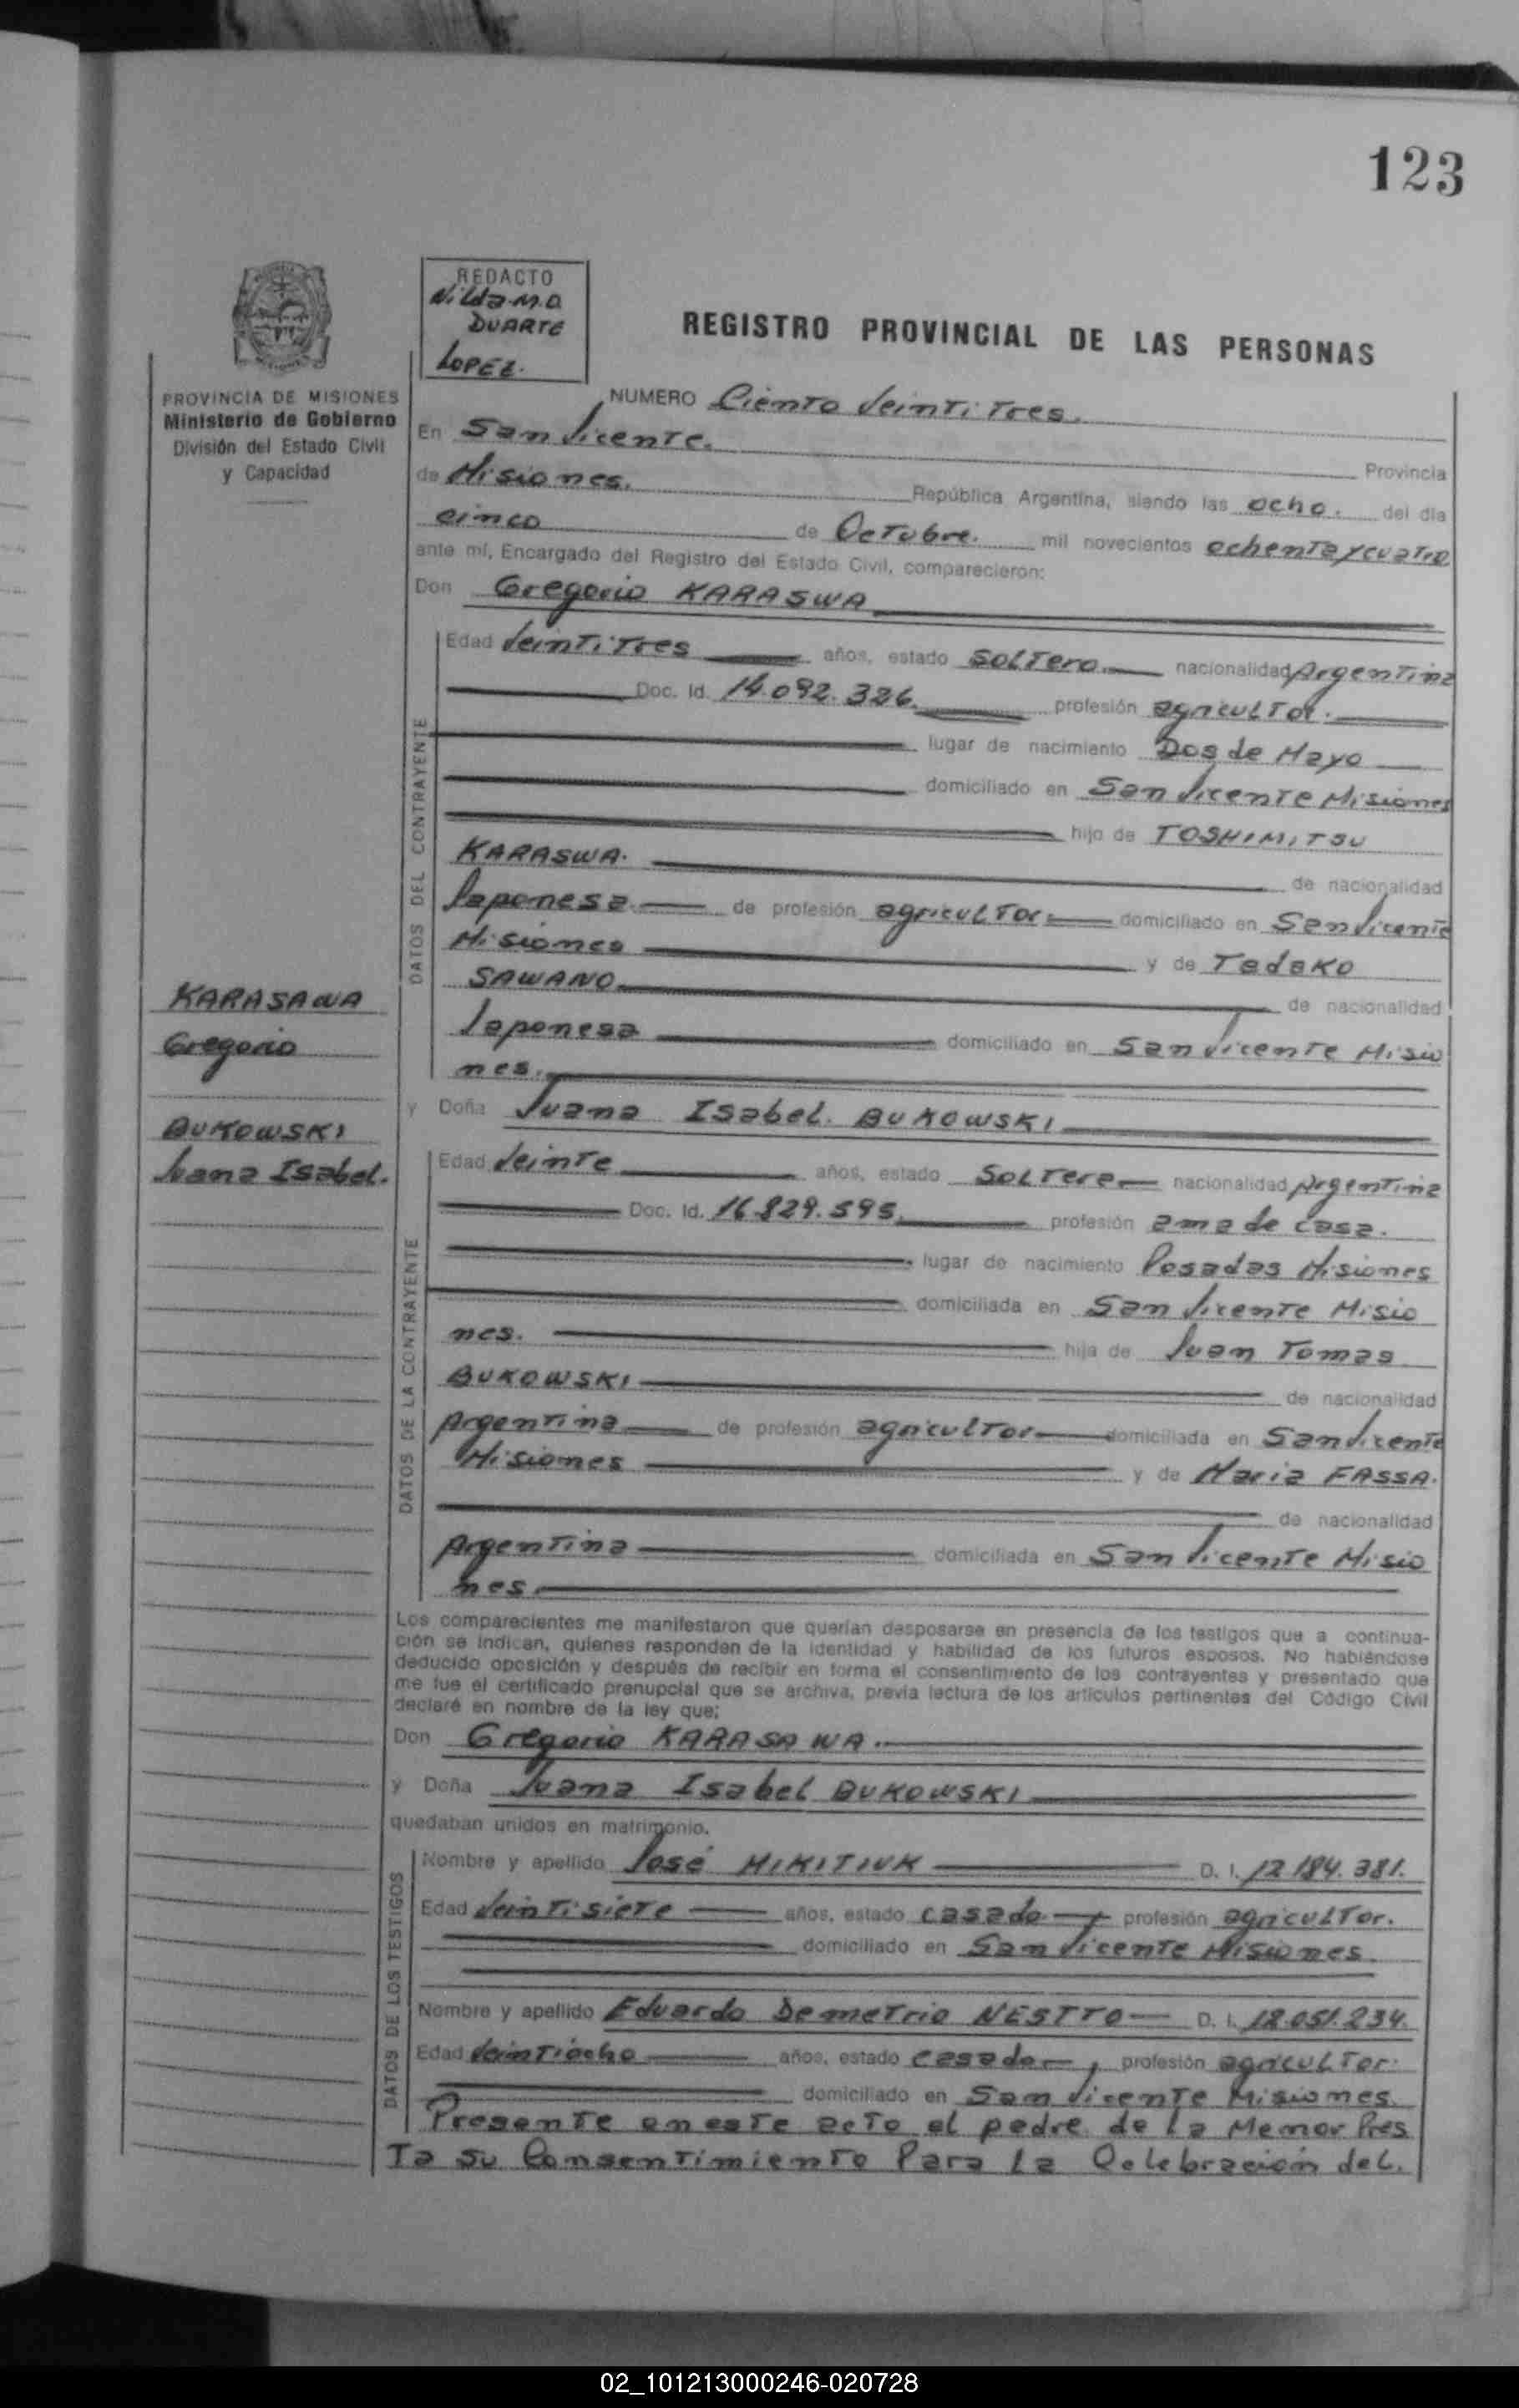 123
REDACTO
Nilda M.D.
DUARTE
LOPEZ.
REGISTRO PROVINCIAL DE LAS PERSONAS
PROVINCIA DE MISIONES
Ministerio de Gobierno
División del Estado Civil
y Capacidad
NUMERO Ciento Veinti Tres.
En San Vicente. Provincia
de Misiones. República Argentina, siendo las ocho. del día
cinco de Octubre. mil novecientos ochenta y cuatro
ante mí, Encargado del Registro del Estado Civil, comparecieron:
Don Gregorio KARASWA
DATOS DEL CONTRAYENTE
Edad Veinti Tres años, estado Soltero. nacionalidad Argentina
Doc. Id. 14.092.326. profesión agricultor.
lugar de nacimiento Dos de Mayo
domiciliado en San Vicente Misiones
hijo de TOSHIMITSU
KARASWA. de nacionalidad
Japonesa de profesión agricultor domiciliado en San Vicente
Misiones y de Tadako
SAWANO. de nacionalidad
Japonesa domiciliado en San Vicente Misio
nes.
KARASAWA
Gregorio
BUKOWSKI
Juana Isabel.
y Doña Juana Isabel. BUKOWSKI
DATOS DE LA CONTRAYENTE
Edad Veinte años, estado Soltera nacionalidad Argentina
Doc. Id. 16.829.595. profesión ama de casa.
lugar de nacimiento Posadas Misiones
domiciliada en San Vicente Misio
nes. hija de Juan Tomas
BUKOWSKI de nacionalidad
Argentina de profesión agricultor domiciliada en San Vicente
Misiones y de Maria FASSA.
de nacionalidad
Argentina domiciliada en San Vicente Misio
nes.
Los comparecientes me manifestaron que querían desposarse en presencia de los testigos que a continua-
ción se indican, quienes responden de la identidad y habilidad de los futuros esposos. No habiéndose
deducido oposición y después de recibir en forma el consentimiento de los contrayentes y presentado que
me fue el certificado prenupcial que se archiva, previa lectura de los artículos pertinentes del Código Civil
declaré en nombre de la ley que:
Don Gregorio KARASAWA.
y Doña Juana Isabel BUKOWSKI
quedaban unidos en matrimonio.
DATOS DE LOS TESTIGOS
Nombre y apellido José MIKITIUK D. I. 12.184.381.
Edad Veintisiete años, estado casado profesión agricultor.
domiciliado en San Vicente Misiones.
Nombre y apellido Eduardo Demetrio NESTTO D. I. 12.051.234.
Edad Veintiocho años, estado casado, profesión agricultor.
domiciliado en San Vicente Misiones.
Presente en este acto el padre de la Menor Pres
Ta su Consentimiento Para la Celebración del.
02_101213000246-020728